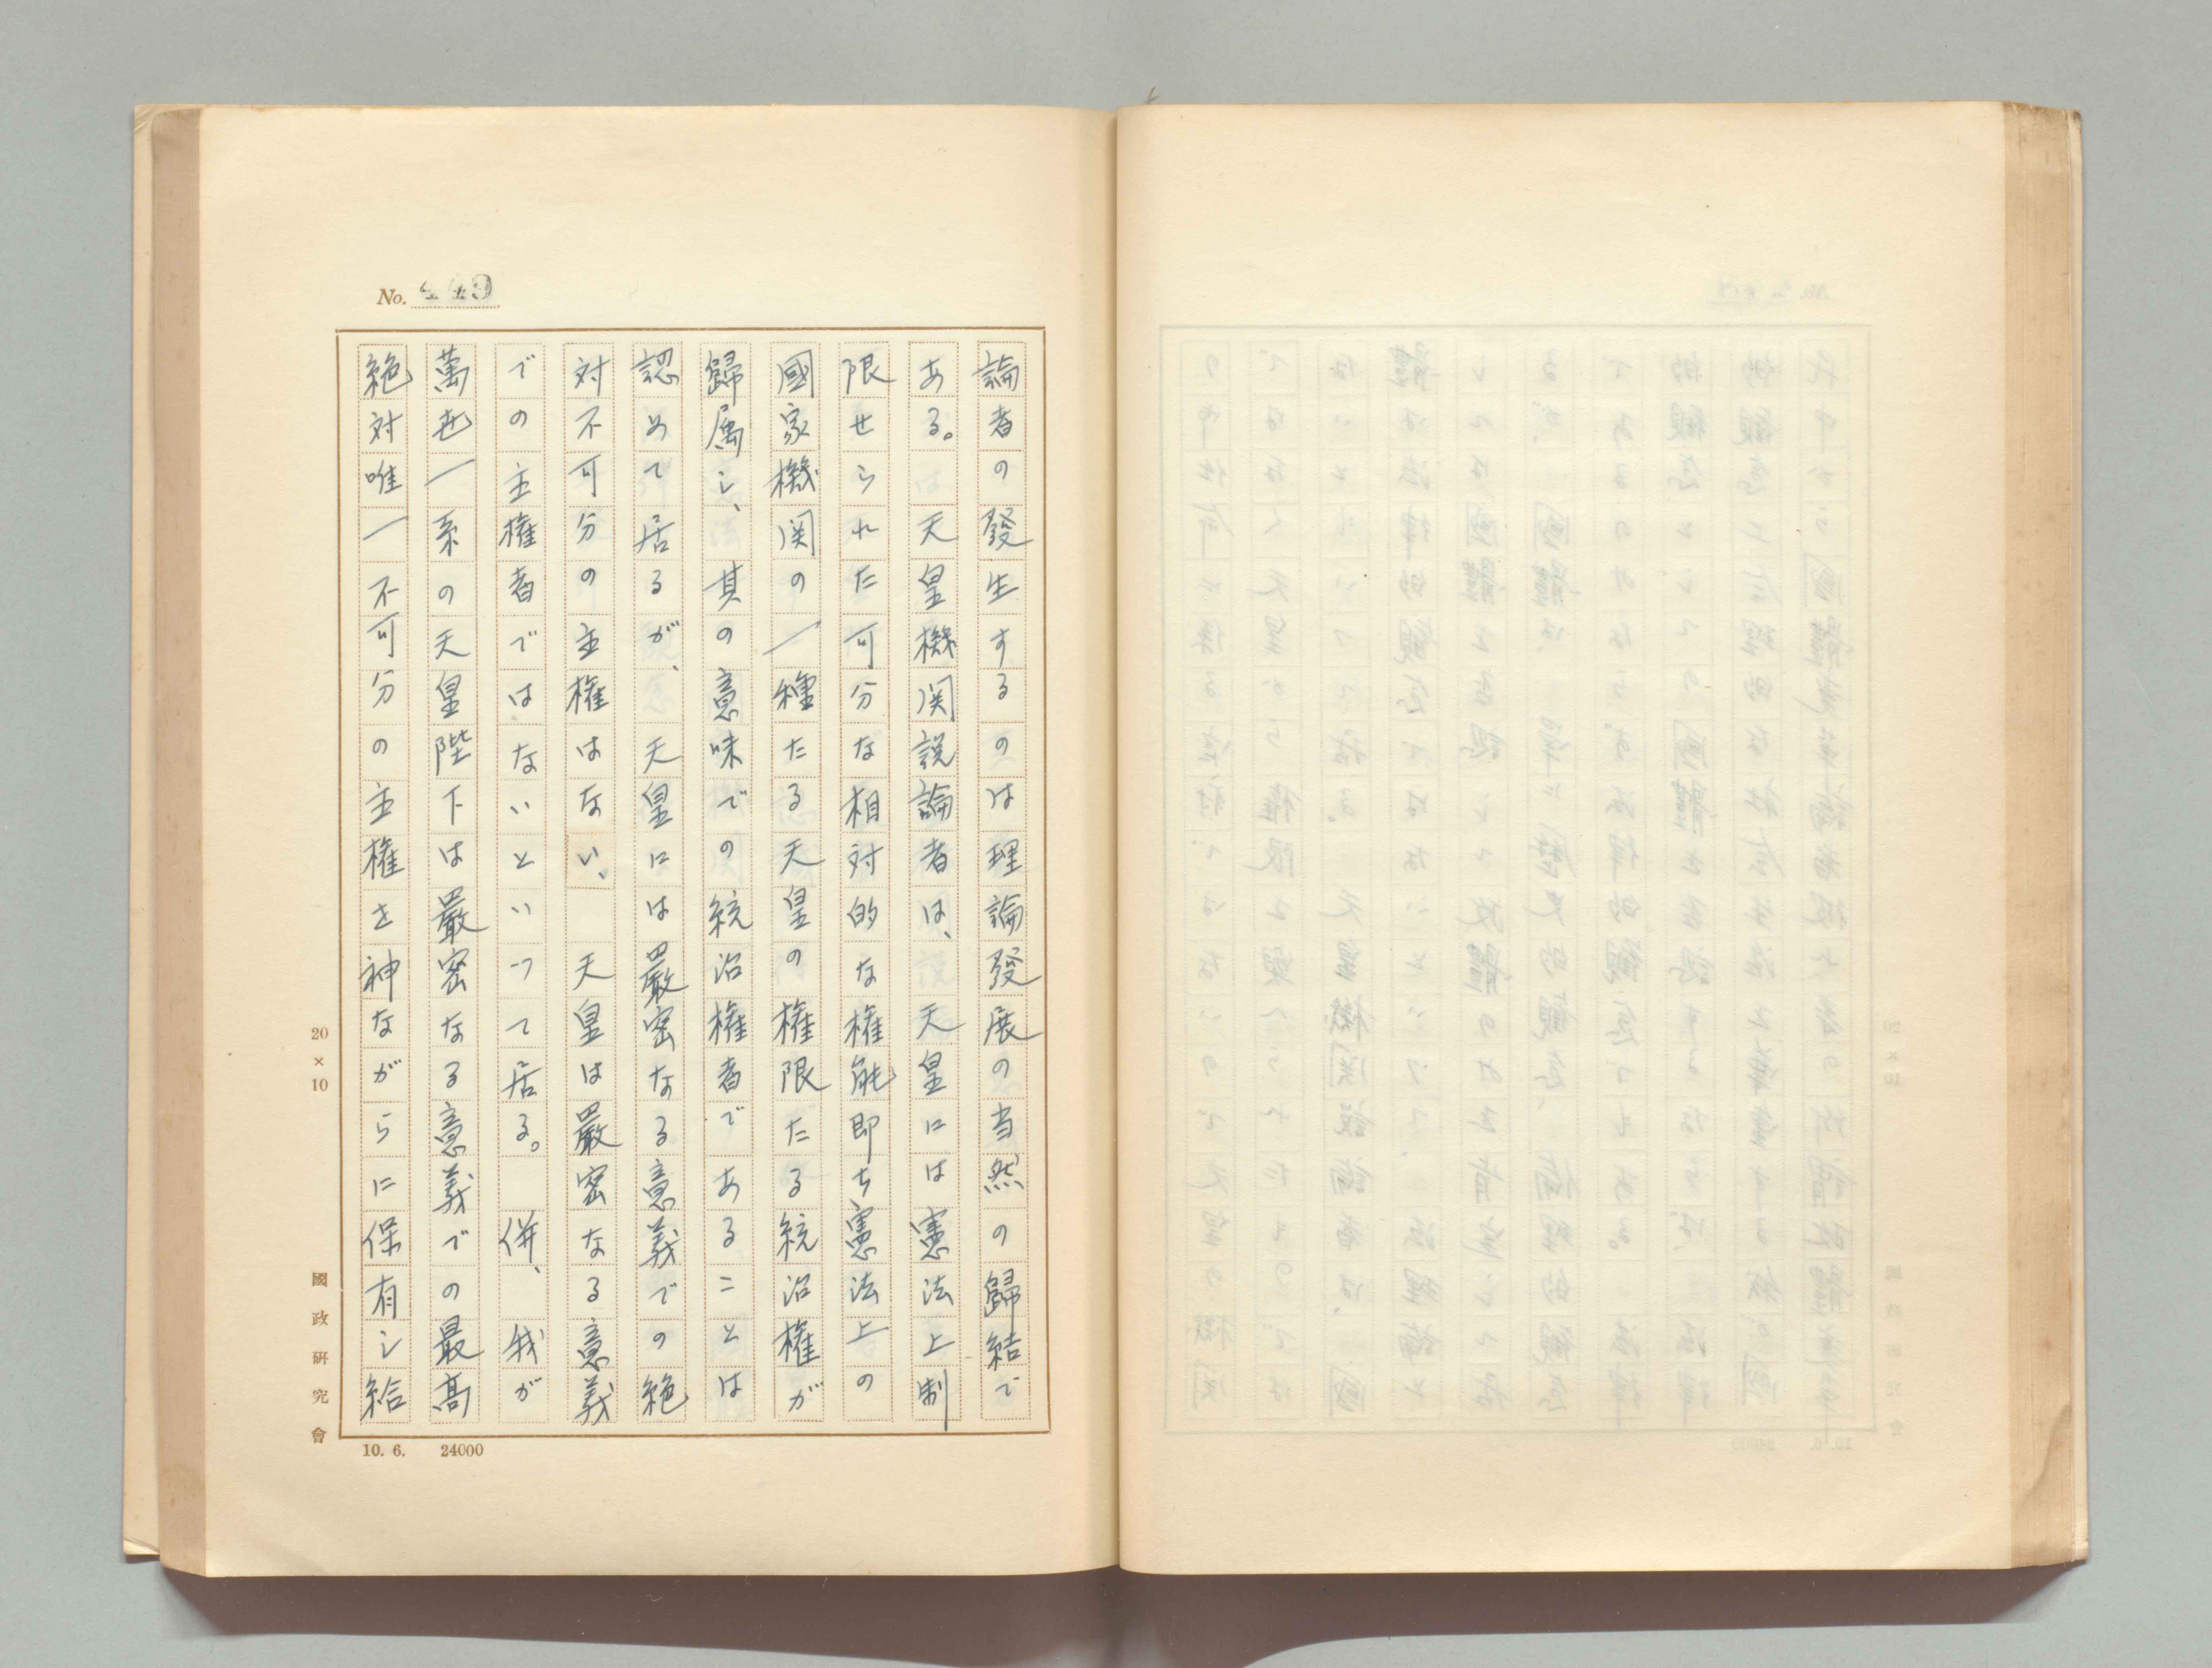 No. 449
論者の發生するのは理論發展の当然の歸結で
ある。 天皇機関説論者は、天皇には憲法上制
限せられた可分な相対的な権能即ち憲法上の
國家機関の一種たる天皇の権限たる統治権が
歸属し、其の意味での統治権者であることは
認めて居るが、天皇には嚴密なる意義での絶
対不可分の主権はない、 天皇は嚴密なる意義
での主権者ではないといつて居る。 併、我が
萬世一系の天皇陛下は嚴密なる意義での最高
絶対唯一不可分の主権を神ながらに保有し給
20×10
國政研究會
10. 6. 24000